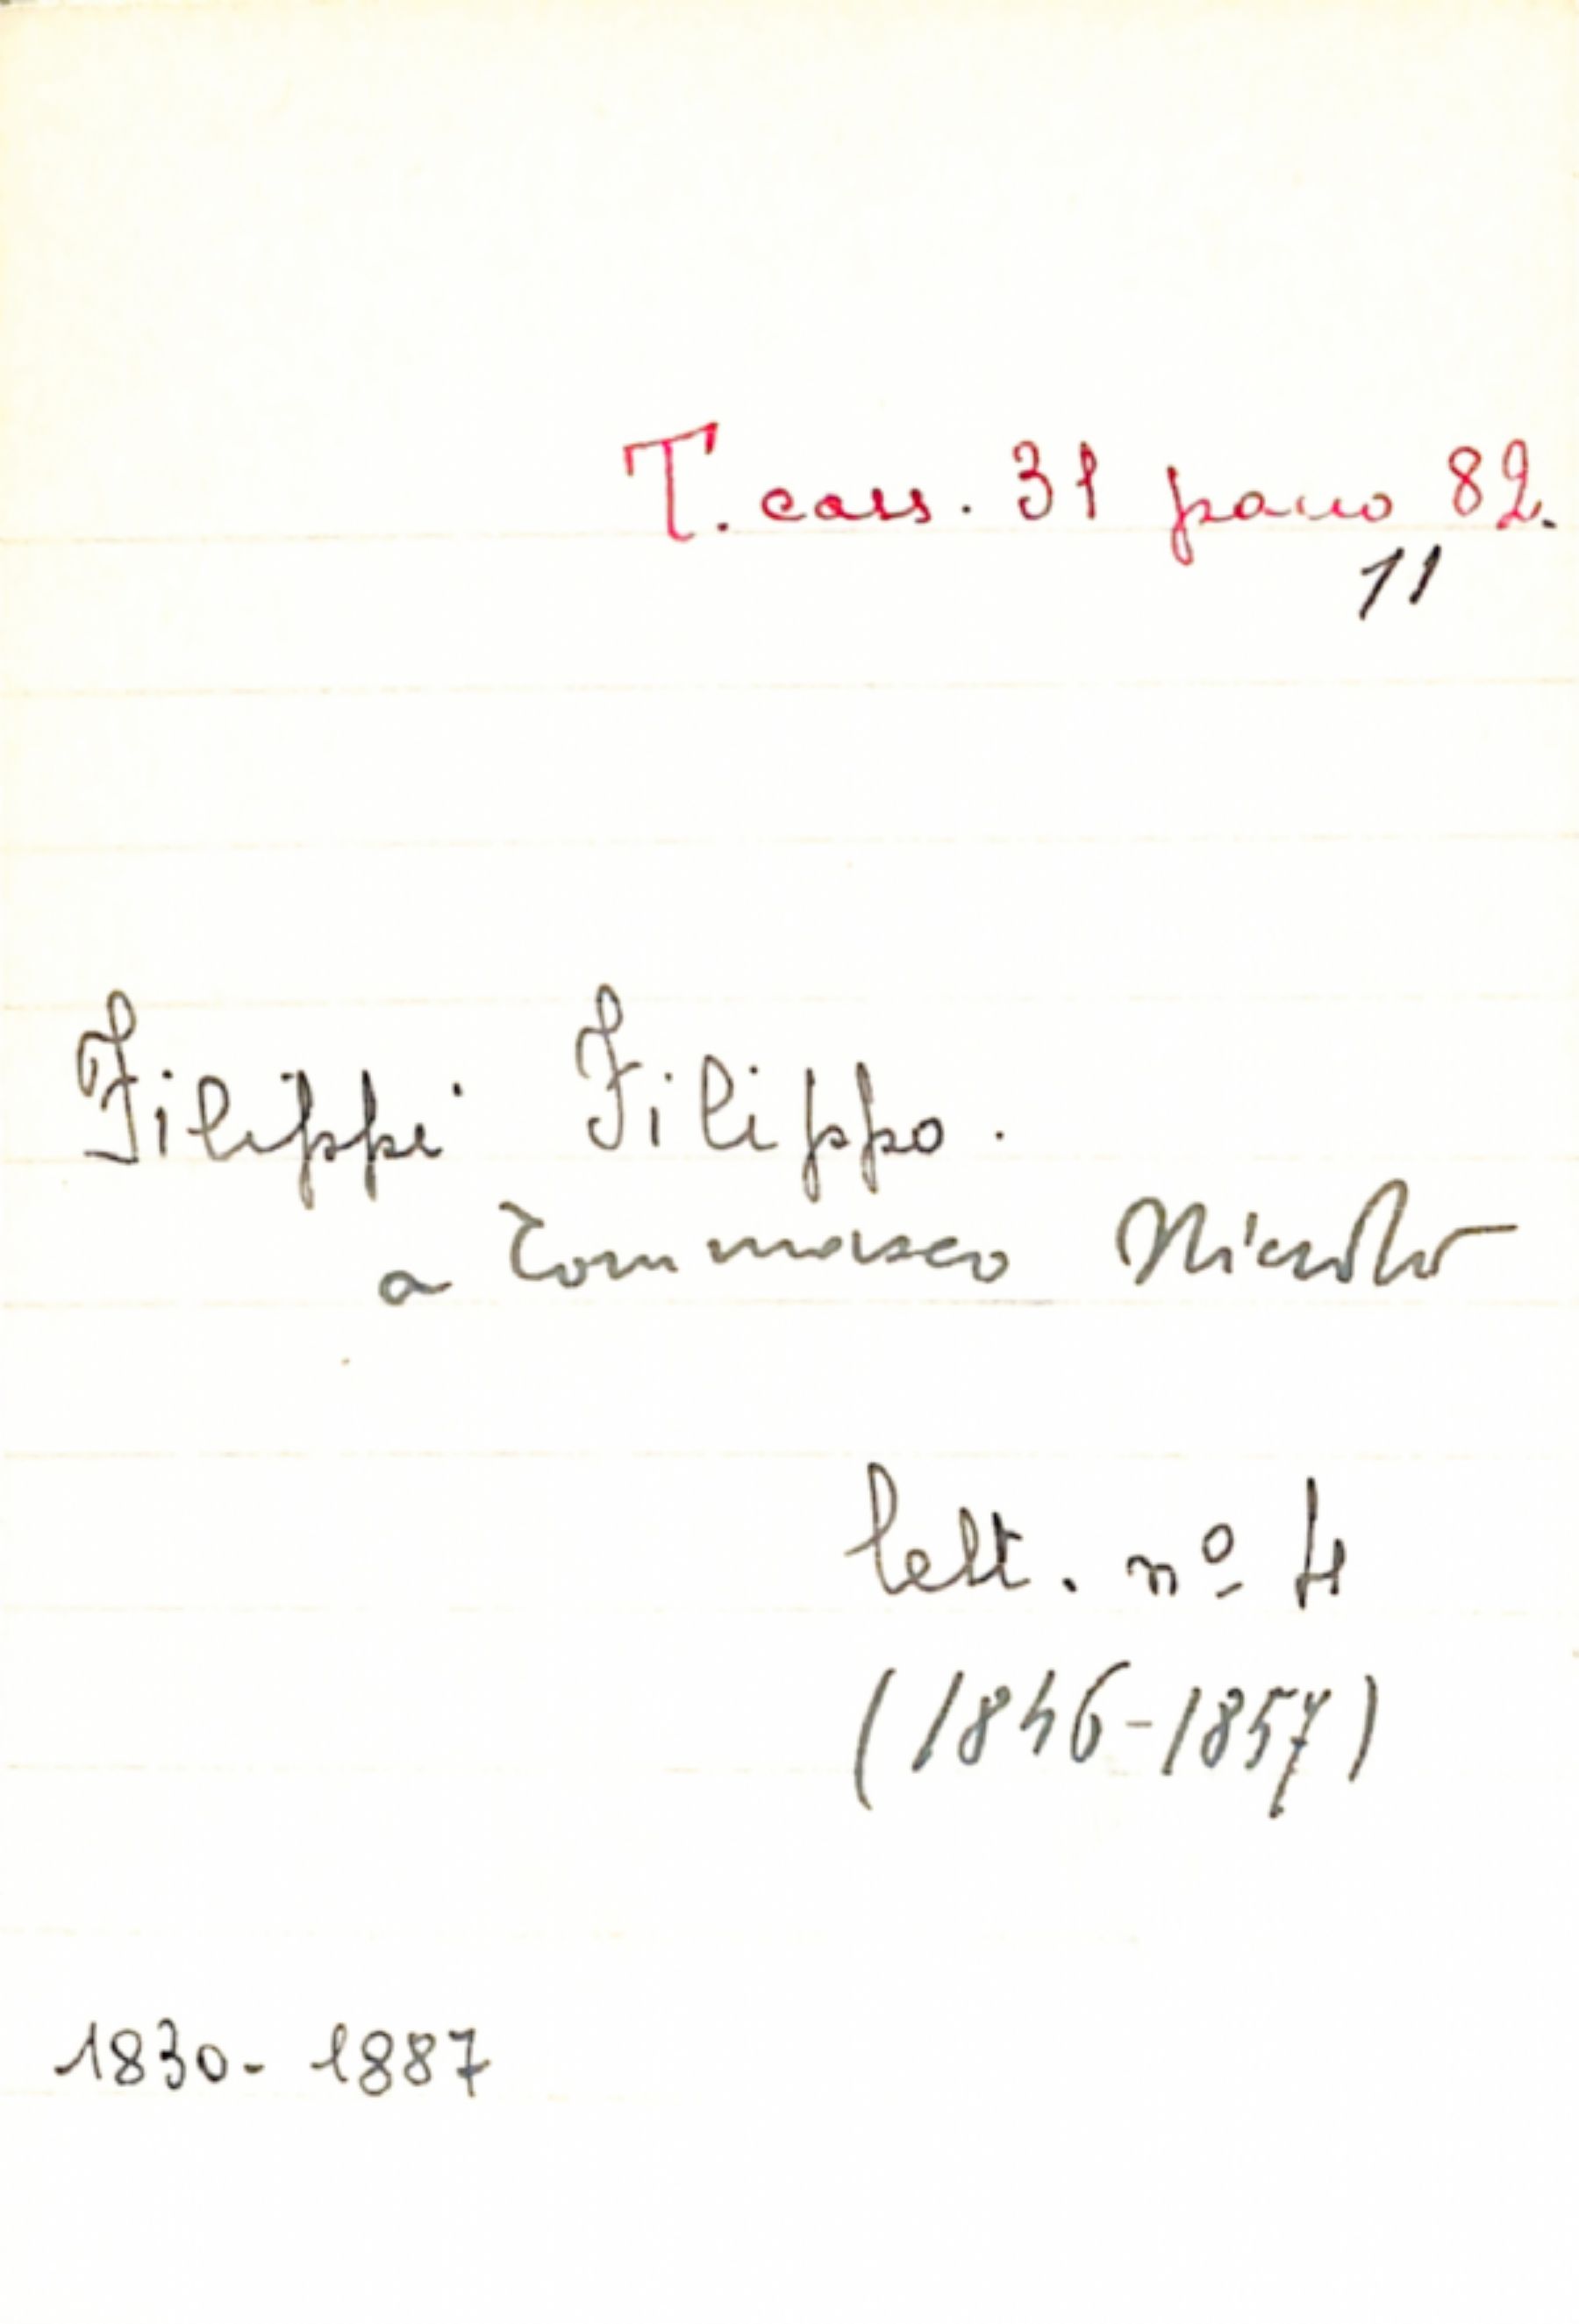 T. cass. 31 pacco 82.
11
Filippi Filippo.
a Tommaseo Nicolò
lett. nº 4
(1846-1857)
1830- 1887